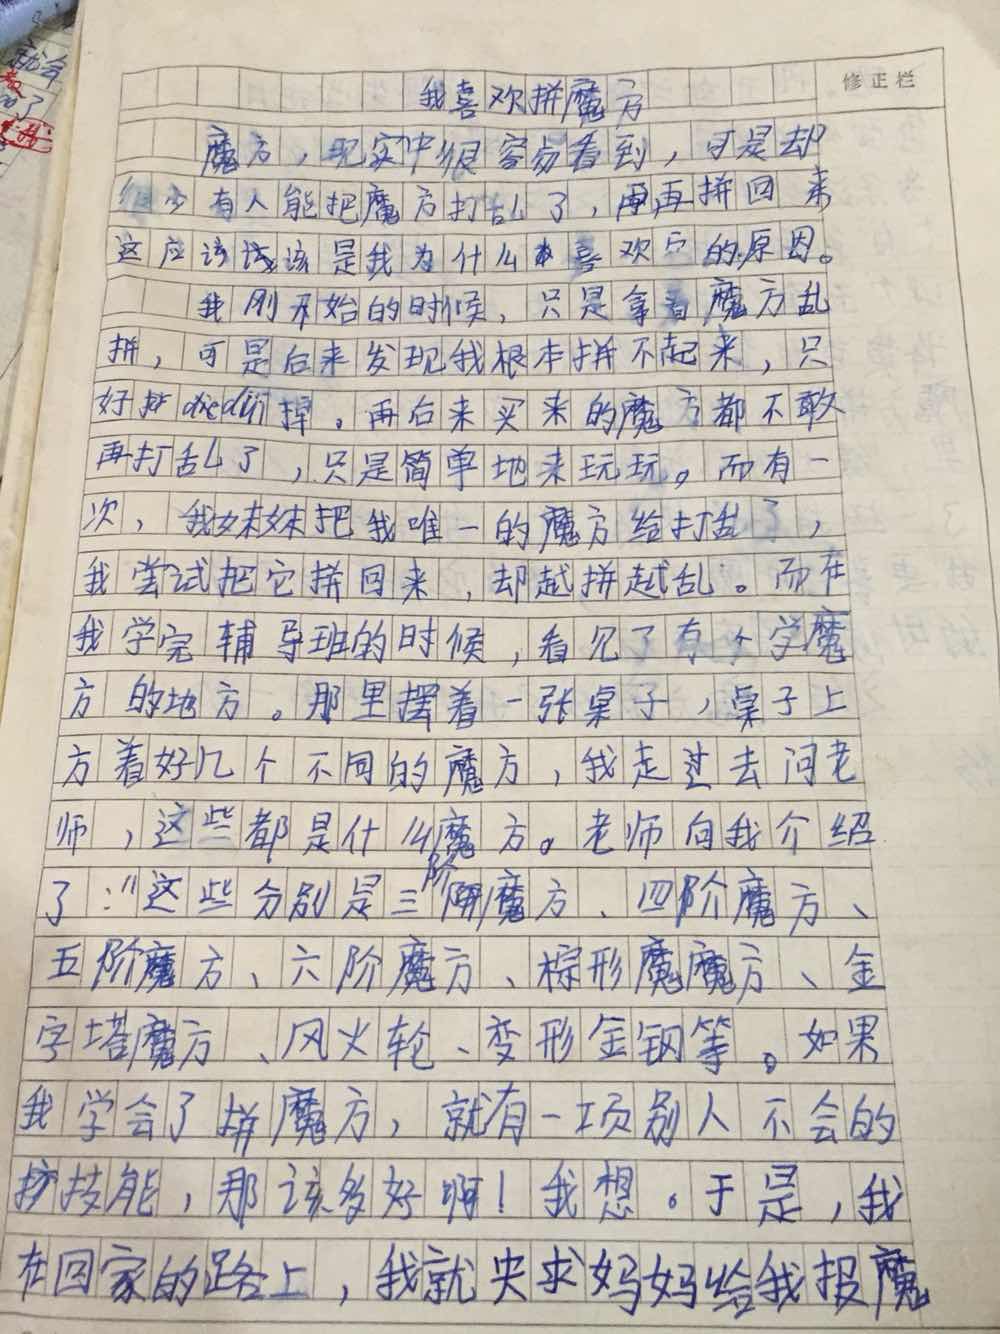 修正栏
我喜欢拼魔方
魔方，现实中很容易看到，可是却
很少有人能把魔方打乱了，再再拼回来
这应该该该是我为什么喜欢它的原因。
我刚开始的时候，只是拿着魔方乱
拼，可是后来发现我根本拼不起来，只
好掉。再后来买来的魔方都不敢
再打乱了，只是简单地来玩玩。而有一
次，我妹妹把我唯一的魔方给打乱了，
我尝试把它拼回来，却越拼越乱。而在
我学完辅导班的时候，看见了有个学魔
方的地方。那里摆着一张桌子，桌子上
方着好几个不同的魔方，我走过去问老
师，这些都是什么魔方。老师向我介绍
了："这些分别是三阶魔方、四阶魔方、
五阶魔方、六阶魔方、棕形魔魔方、金
字塔魔方、风火轮、变形金钢等。如果
我学会了拼魔方，就有一项别人不会的
技能，那该多好啊！我想。于是，我
在回家的路上，我就央求妈妈给我报魔
就会
了